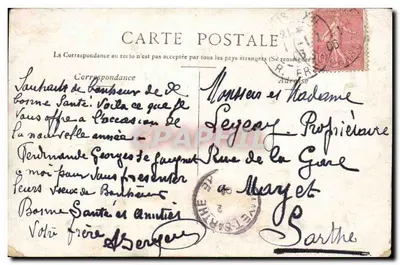 CARTE POSTALE
La Correspondance au recto n'est pas acceptée par tous les pays étrangers (Se renseigner
Correspondance
Adresse
Souhaits de bonheur de
bonne Santé. Voila ce que je
vous offre à l'occasion de
la nouvelle année
Ferdinande Georges se joignent
à moi pour vous présenter
leurs vœux de Bonheur
Bonne Santé et Amitiés
Votre frère
Monsieur et Madame
Propriétaire
Rue de la Gare
a Mayet
Sarthe
SARTHE